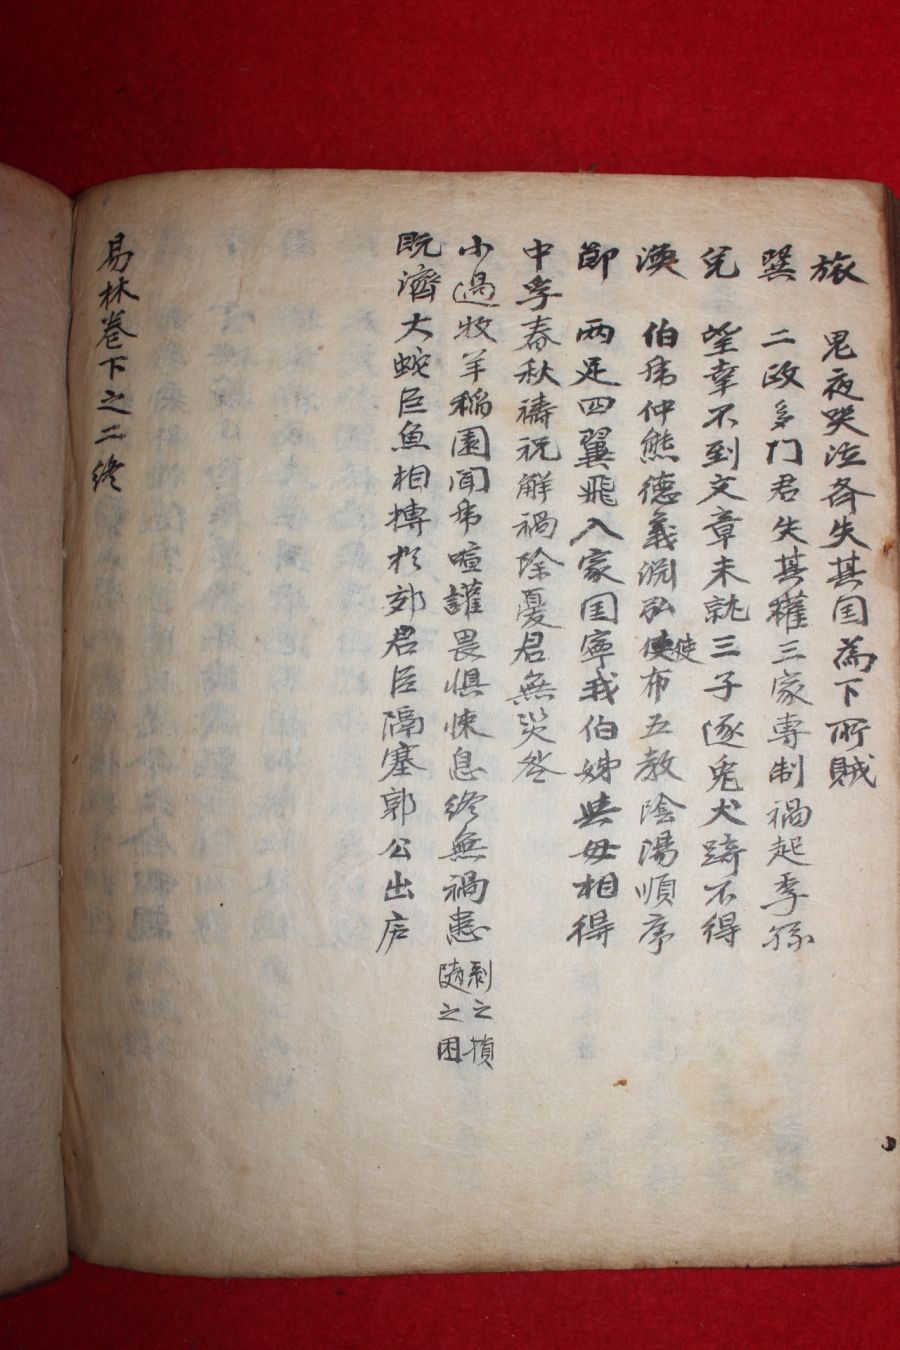 旅 鬼夜哭泣齊失其国為下所賊
巽 二政多门君失其權三家專制禍起季孫
兌 望幸不到文章未就三子逐兎犬踦不得
渙 伯爲仲熊德義淵弘使布五敎陰陽順序
節 两足四翼飛入家国寧我伯姊與母相得
中孚春秋禱祝觧禍除憂君無災咎
小過牧羊稻園闻爲喧讙畏惧悚息終無禍患 剥之損 隨之困
既濟大蛇巨魚相搏於郊君臣隔塞郭公出庐
易林卷下之二終